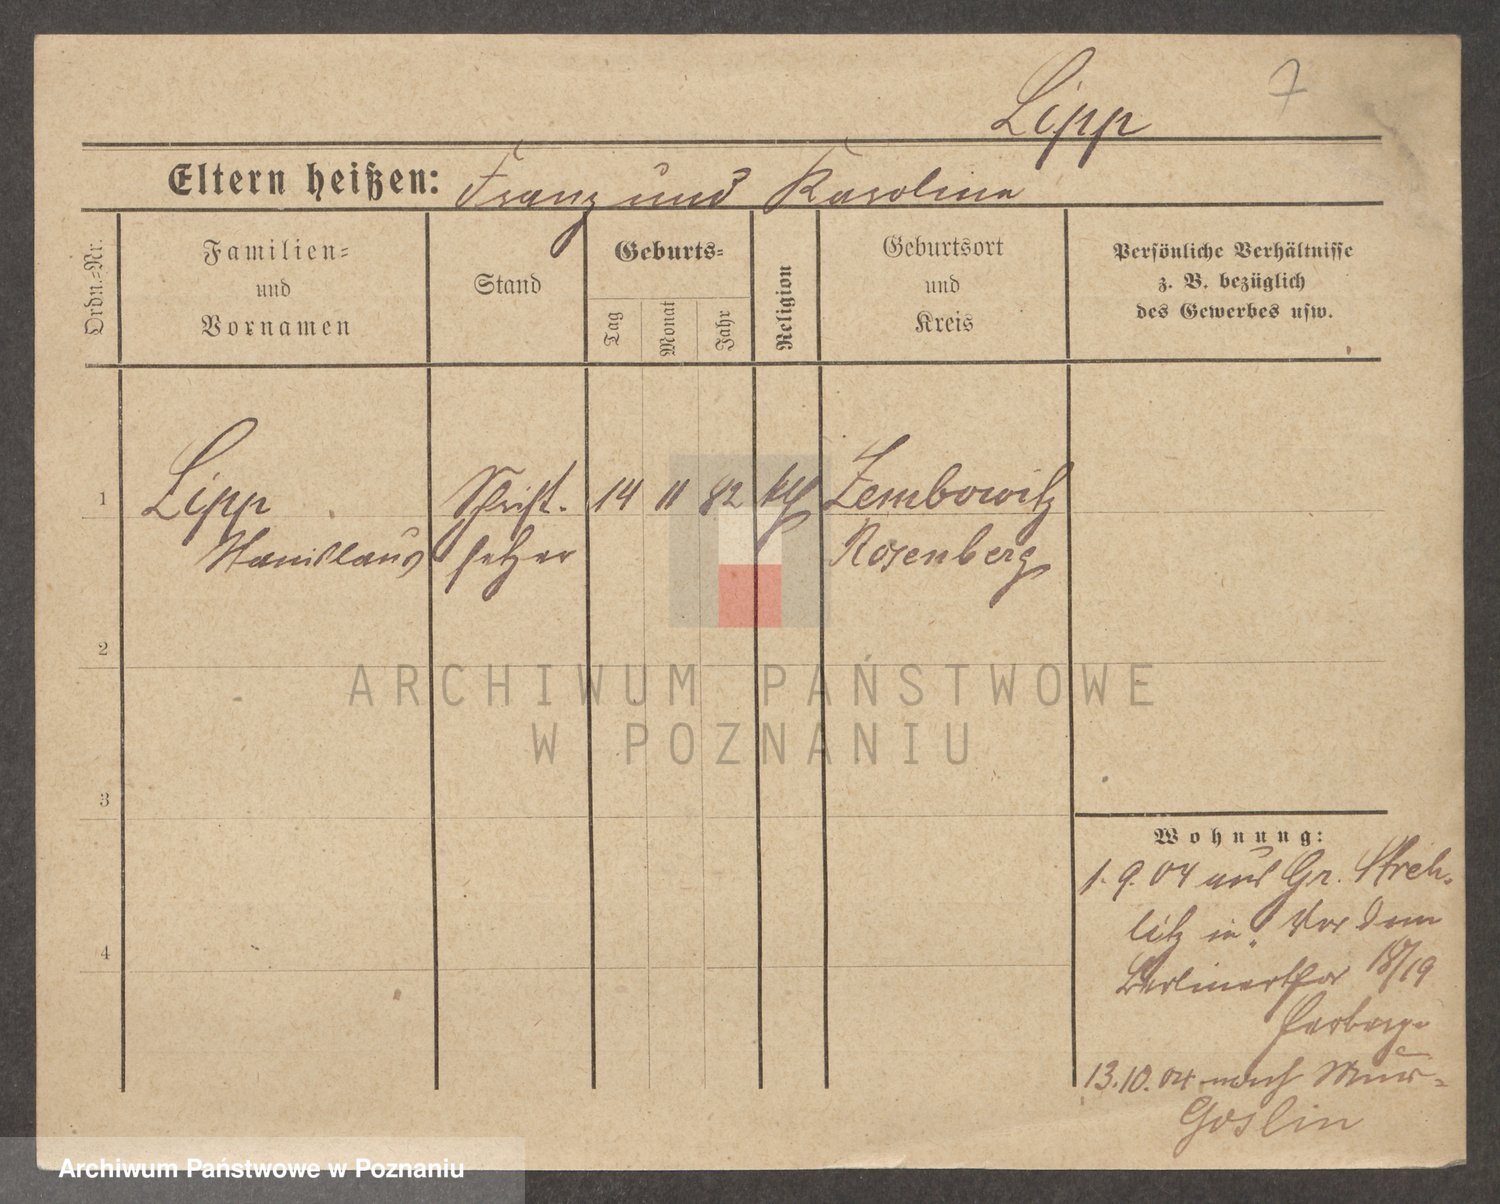 Lipp
7
Eltern heißen: Franz und Karolina
Ordn.-Nr.
Familien-
und
Vornamen
Stand
Geburts-
Tag
Monat
Jahr
Religion
Geburtsort
und
Kreis
Persönliche Verhältnisse
z. B. bezüglich
des Gewerbes usw.
1
Lipp
Stanislaus
Schrift-
setzer
14
11
82
kth
Zembowitz
Rosenberg
2
3
4
ARCHIWUM PAŃSTWOWE
W POZNANIU
Wohnung:
1.9.04 aus Gr. Streh-
litz in Vor dem
Berlinerthor 18/19
Herberge
13.10.04 nach Mur.-
Goslin
Archiwum Państwowe w Poznaniu